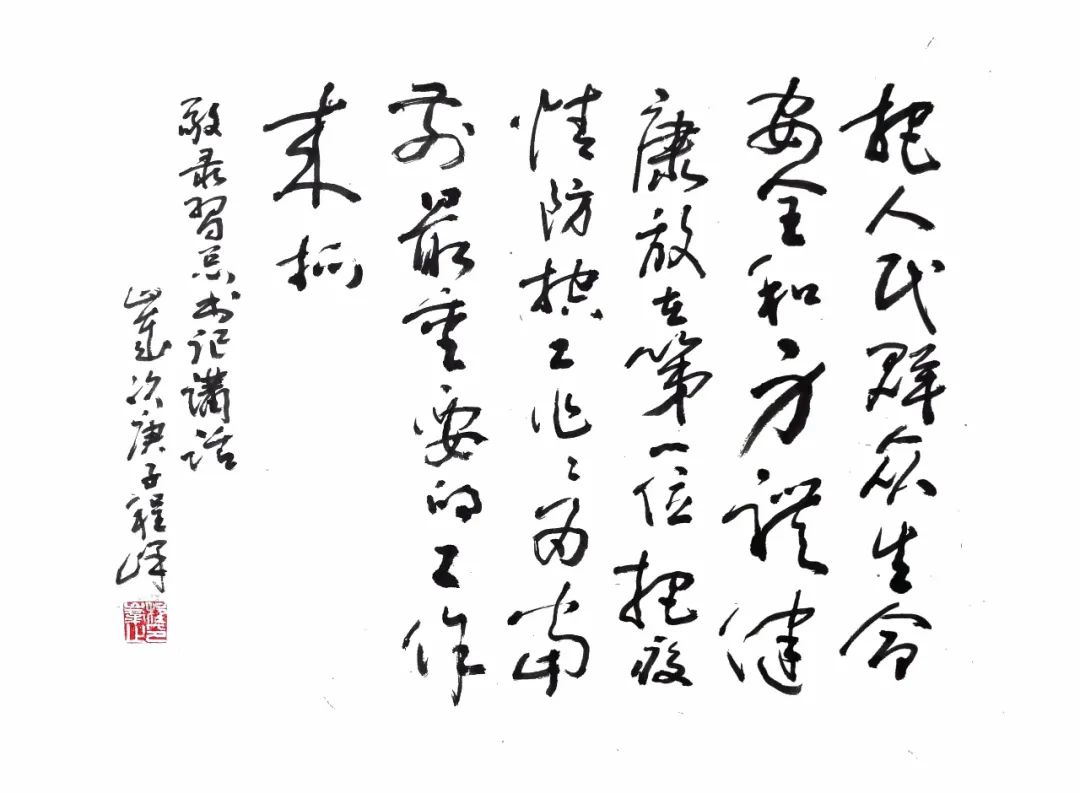 把人民群众生命
安全和身體健
康放在第一位把疫
情防控工作〻为當
前最重要的工作
来抓
敬录習总书记講话
歲次庚子程峰